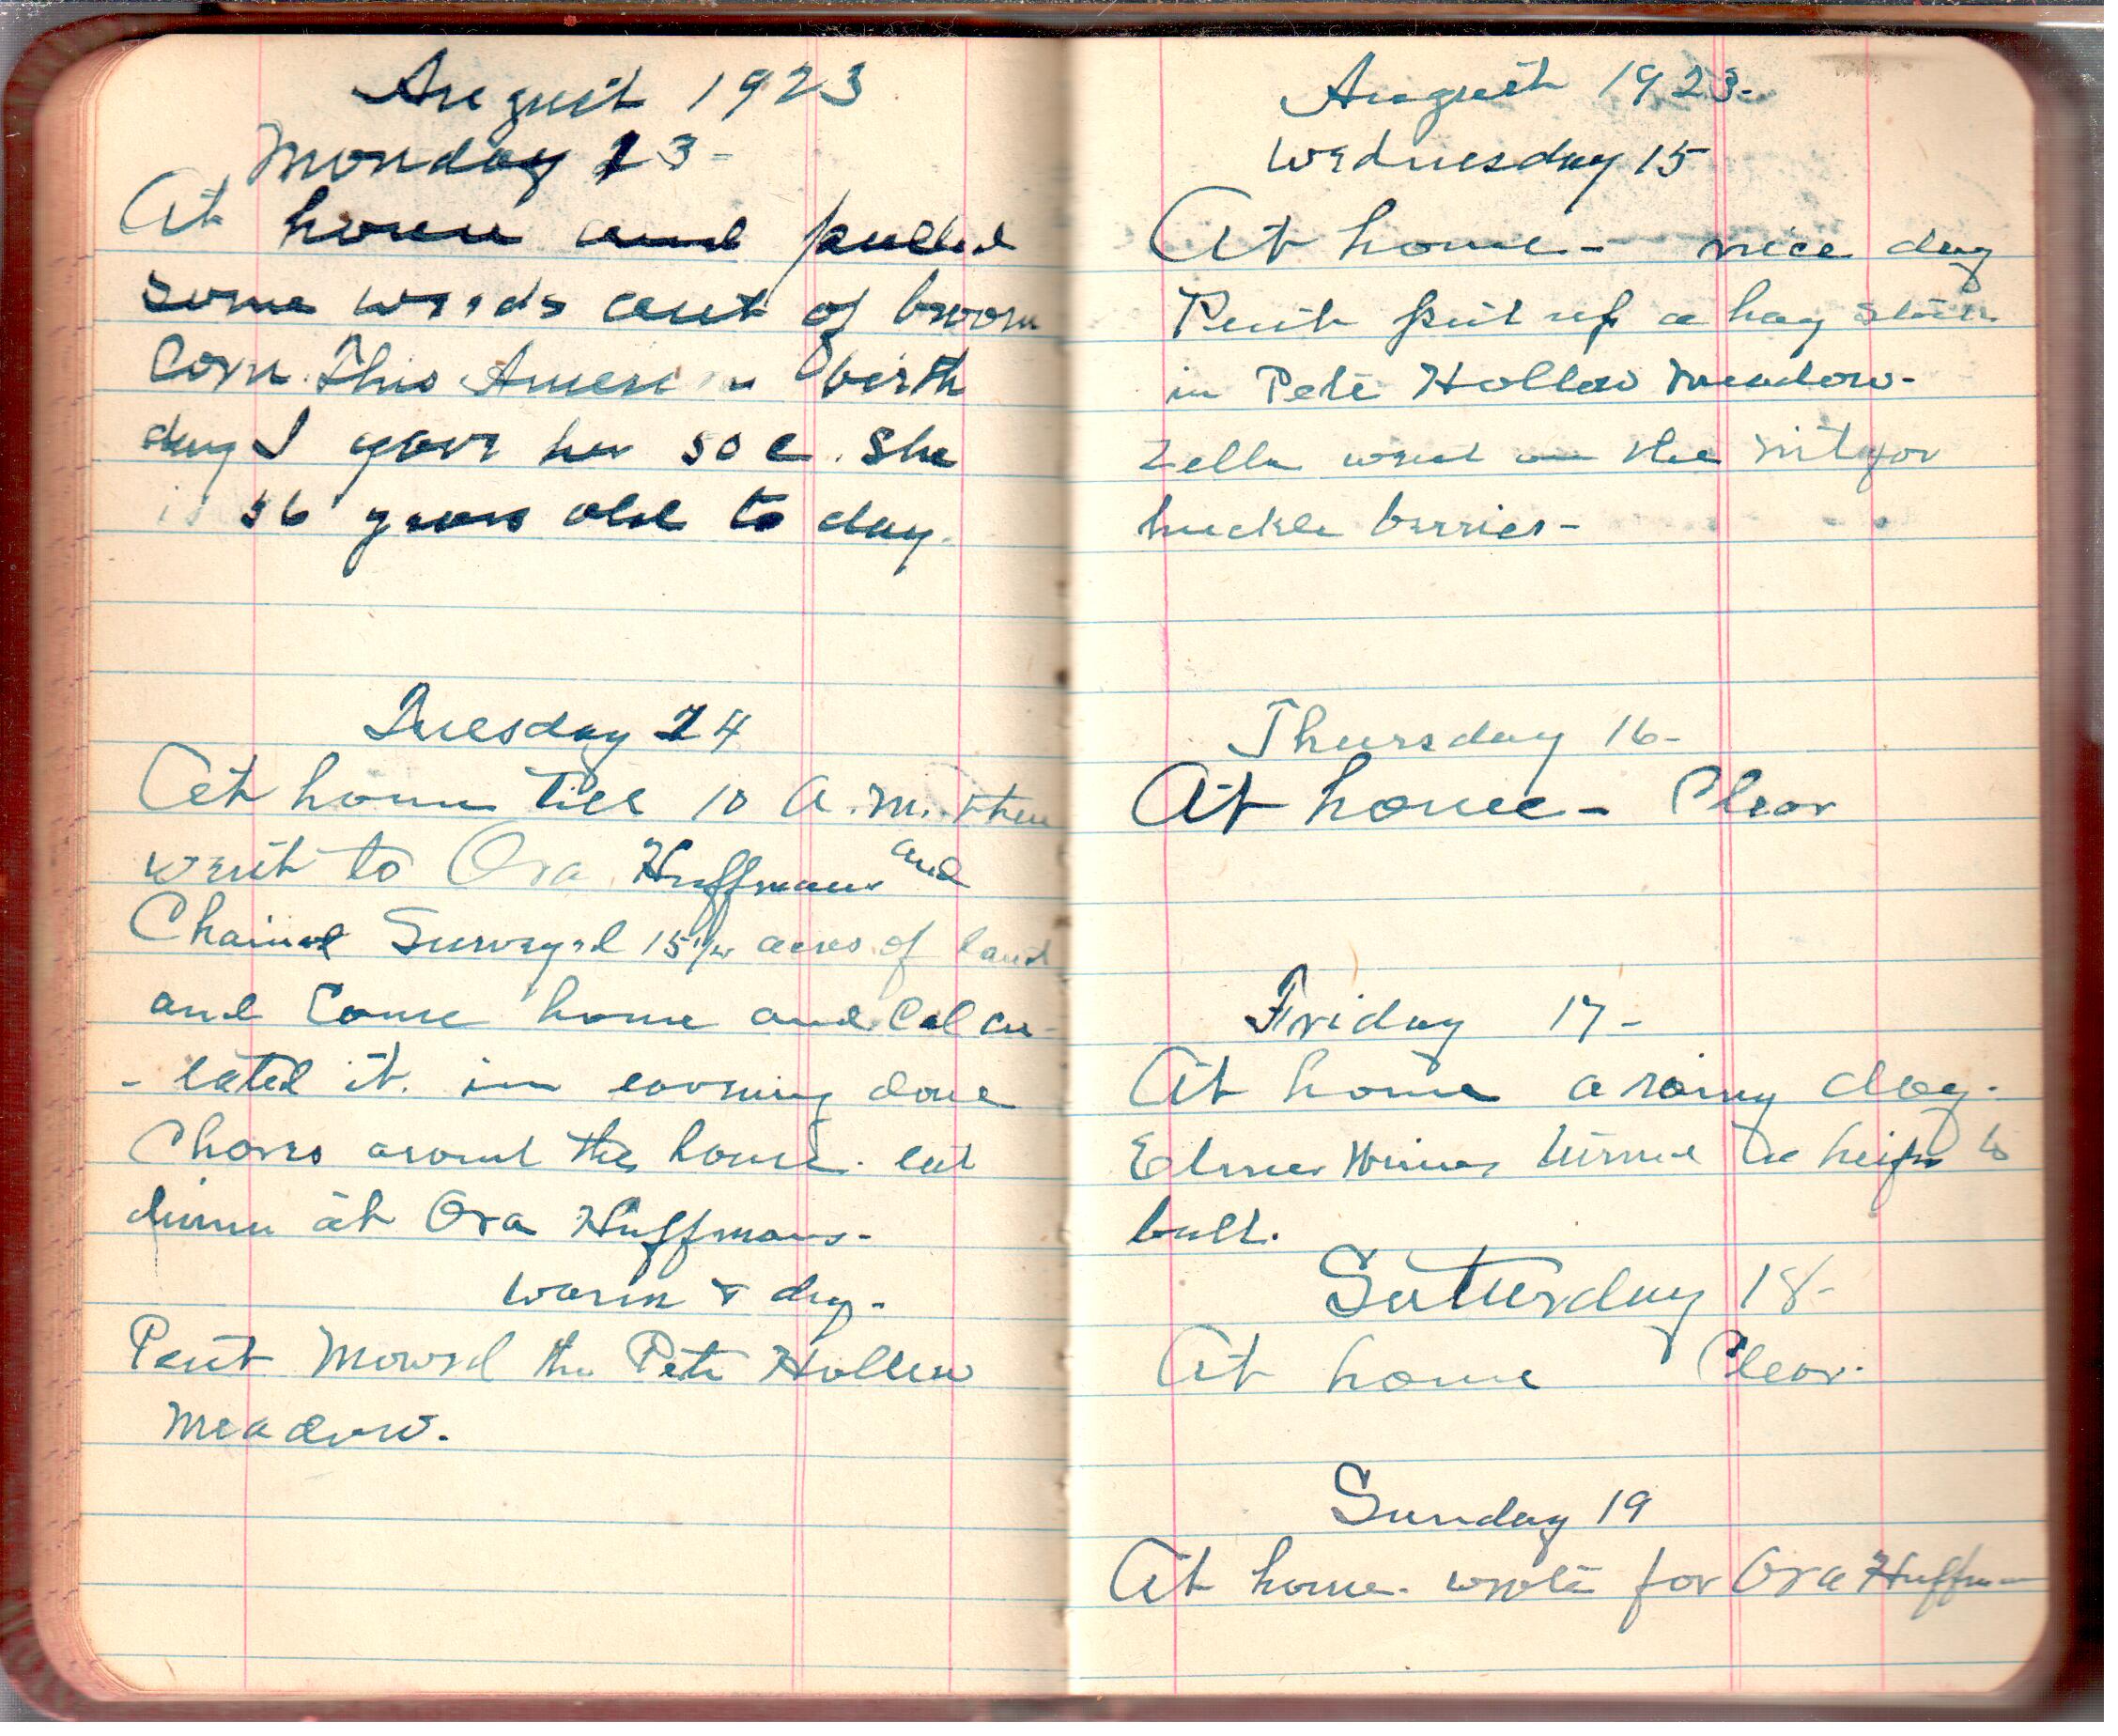 August 1923
Monday 13-
At home and pulled
some weeds out of broom
Corn. This birth
day I gave her 50 c. She
is 36 years old to day.
Tuesday 14
At home till 10 A.M. then
went to Ora Huffmans and
Chained Surveyed 15 acres of land
and Come home and Calcu-
-lated it. in evening done
Chores around the house. eat
dinner at Ora Huffmans-
warm & dry-
Pent Mowed the Pete Hollow
Meadow.
August 1923-
Wednesday 15
At home- nice day
Pent put up a hay stack
in Pete Hollow Meadow-
Zella went on the for
huckle berries-
Thursday 16-
At home- Clear
Friday 17-
At home a rainy day-
Elmer heifer to
bull.
Saturday 18-
At home Clear-
Sunday 19
At home- wrote for Ora Huffman